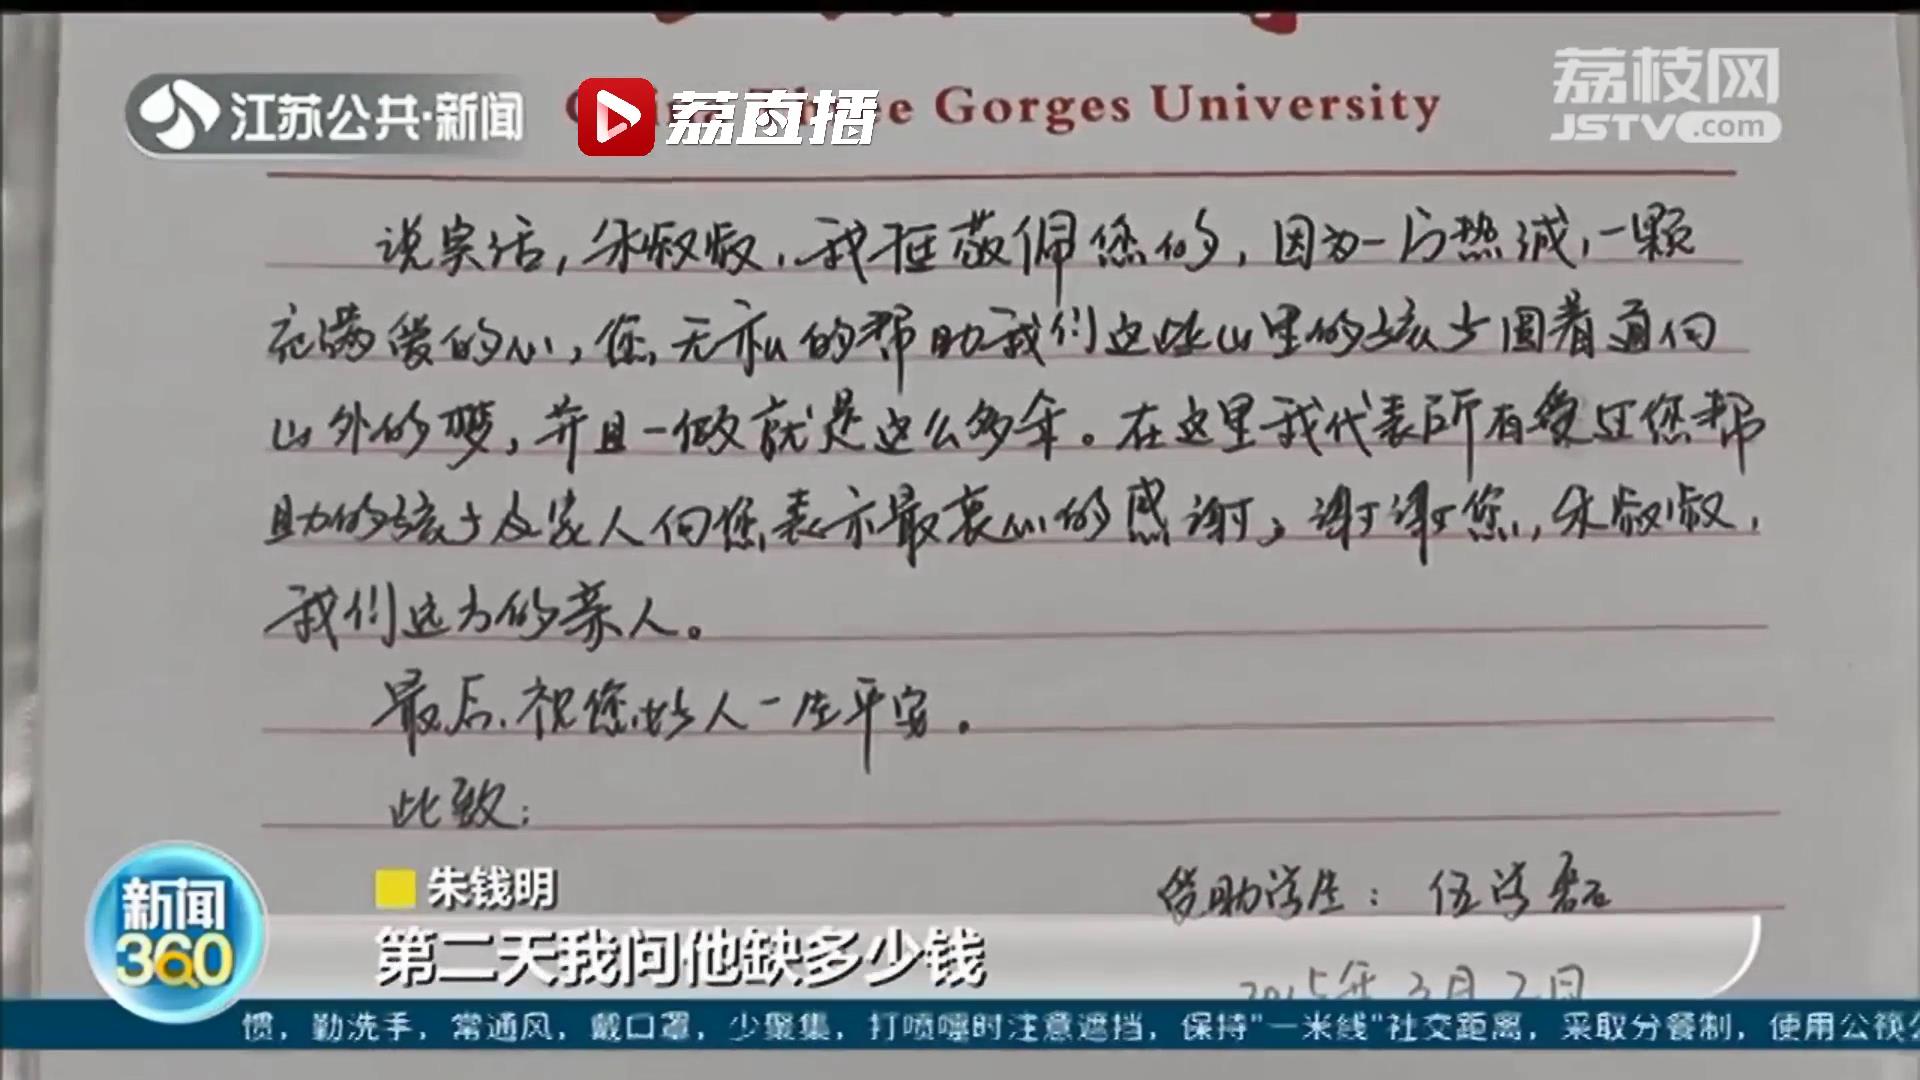 江苏公共·新闻
荔直播
Gorges University
荔枝网
JSTV.com
说实话，朱叔叔，我挺敬佩您的，因为一片热诚，一颗
充满爱的心，您无私的帮助我们这些山里的孩子圆着通向
山外的梦，并且一做就是这么多年。在这里我代表所有受过您帮
助的孩子及家人向您表示最衷心的感谢，谢谢您，朱叔叔，
我们远方的亲人。
最后，祝您好人一生平安。
此致：
资助学生：伍
2015年3月2日
朱钱明
第二天我问他缺多少钱
新闻
360
惯，勤洗手，常通风，戴口罩，少聚集，打喷嚏时注意遮挡，保持"一米线"社交距离，采取分餐制，使用公筷公